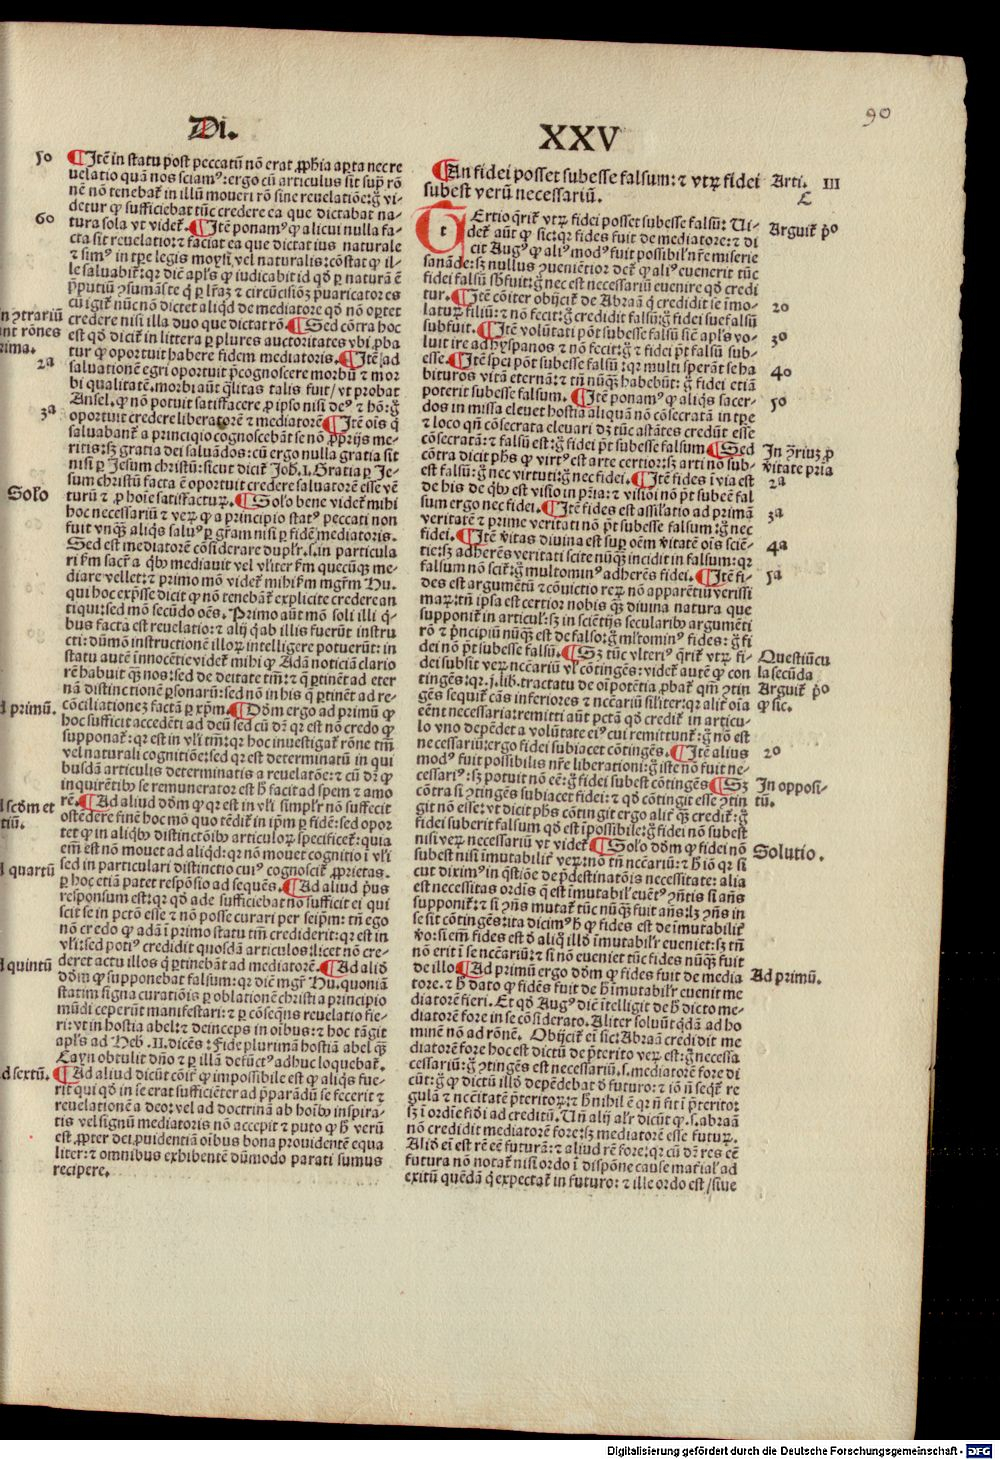 90
Di.
XXV
5o
¶Itẽ in statu post peccatũ nõ erat ꝓphia aꝑta nec re
uelatio quã nos sciamꝰ: ergo cũ articulus sit supͣ rõ
nẽ nõ tenebat᷑ in illũ moueri rõ sine reuelatiõe: gͦ vi-
detur ꝙ sufficiebat tũc credere ea que dictabat na-
6o
tura sola vt videt᷑. ¶Itẽ ponamꝰ ꝙ alicui nulla fa-
cta sit reuelatio: ⁊ faciat ea que dictat ius naturale
⁊ simꝰ in tꝑe legis moysi vel naturalis: cõstat ꝙ il-
le saluabit᷑: qꝛ dicit apl's ꝙ iudicabit id qd ꝑ naturã ẽ
cũ igit᷑ nũc nõ dictet aliqd de mediatore qd nõ oꝑtet
credere nisi illa duo que dictat rõ. ¶Sed cõtra hoc
est qd dicit᷑ in littera ꝑ plures auctoritates vbi ꝓba
tur ꝙ oportuit habere fidem mediatoris. ¶Itẽ ad
2a
saluationẽ egri oportuit p̃cognoscere morbũ ⁊ mor
bi qualitatẽ. morbi aũt q̃litas talis fuit/ vt probat
Ansel. ꝙ nõ potuit satisfacere ꝓ ipso nisi deꝰ ⁊ hõ: gͦ
3a
oportuit credere liberatorẽ ⁊ mediatorẽ ¶Itẽ oĩs q̃
saluabant᷑ a principio cognoscebãt se nõ ꝓprijs me-
ritis: sꝫ gratia dei saluãdos: cũ ergo nulla gratia sit
nisi ꝑ Jesum christũ: sicut dicit᷑ Joh. I. Gratia ꝑ Je-
sum christũ facta ẽ oportuit credere saluatorẽ esse vẽ
Solo
turũ ⁊ ꝓ hoĩe satisfacturꝝ. ¶Solo bene videt᷑ mihi
hoc necessariũ ⁊ veꝝ ꝙ a principio statꝰ peccati non
fuit vnqꝫ aliqs saluꝰ ꝑ gr̃am nisi ꝑ fidẽ mediatoris.
Sed est mediatorẽ cõsiderare duplr̃. s. in particula
ri fm sacr̃a qbꝰ mediauit vel vl'iter fm quecũqꝫ me-
diare vellet: ⁊ primo mõ videt᷑ mihi fm mgr̃m Hu.
qui hoc exp̃sse dicit ꝙ nõ tenebãt᷑ explicite credere an
tiqui: sed mõ secũdo oẽs. Primo aũt mõ soli illi q̃-
bus facta est reuelatio: ⁊ alij q̃ ab illis fuerũt instru
cti: dũmõ instructionẽ illoꝝ intelligere potuerũt: in
statu autẽ innocẽtie videt᷑ mihi ꝙ Adã noticiã clario
rẽ habuit qꝫ nos: sed de deitate tm̃: ⁊ q̃ ꝑtinẽt ad eter
nã distinctionẽ ꝑsonarũ: sed nõ in his q̃ ꝑtinẽt ad re-
d primũ.
cõciliationẽ factã ꝑ xp̃m. ¶Dõm ergo ad primũ ꝙ
hoc sufficit accedẽti ad deũ sed cũ dr̃ qꝛ est nõ credo ꝙ
supponat᷑: qꝛ est in vl'i tm̃: qꝛ hoc inuestigat᷑ rõne tm̃
vel naturali cognitiõe: sed qꝛ est determinatũ in qui
busdã articulis determinatis a reuelatõe: ⁊ cũ dr̃ ꝙ
inquirẽtibꝰ se remunerator est h̃ facit ad spem ⁊ amo
d scdm et
rẽ. ¶Ad aliud dõm ꝙ qꝛ est in vl'i simpl'r nõ suffecit
tiũ.
ostẽdere finẽ hoc mõ quo tẽdit᷑ in ip̃m ꝑ fidẽ: sed opor
tet ꝙ in aliqbꝰ distinctõibꝰ articuloꝝ specificet᷑: quia
d quartũ
eni est nõ mouet ad aliqd: qꝛ nõ mouet cognitio ĩ vl'i
sed in particulari distinctio cuiꝰ cognoscit᷑ ꝓprietas.
ꝑ hoc etiã patet respõsio ad sequẽs. ¶Ad aliud p̃us
responsum est: qꝛ qd ade sufficiebat nõ sufficit ei qui
scit se in pctõ esse ⁊ nõ posse curari per seip̃m: tñ ego
nõ credo ꝙ adã ĩ primo statu tm̃ crediderit: qꝛ est in
vl'i: sed potiꝰ credidit quosdã articulos: licet nõ cre-
d quintũ
deret actu illos q̃ ꝑtinebãt ad mediatorẽ. ¶Ad aliõ
dõm ꝙ supponebat falsum: qꝛ diẽ mgr̃ Hu. quoniã
statim signa curatiõis ꝑ oblationẽ christi a principio
mũdi ceperũt manifestari: ⁊ ꝑ cõseqns reuelatio fie-
ri: vt in hostia abel: ⁊ deinceps in oĩbus: ⁊ hoc tãgit
apl's ad Heb. II. dicẽs: Fide plurimã hostiã abel qꝫ
Cayn obtulit dño ⁊ ꝑ illã defũctꝰ adhuc loquebat᷑.
d sextũ.
¶Ad aliud dicũt cõit᷑ ꝙ impossibile est ꝙ aliqs fue-
rit qui qd in se erat sufficiẽter ad p̃parãdũ se fecerit ⁊
reuelationẽ a deo: vel ad doctrinã ab hoĩbꝰ inspira-
tis vel signũ mediatoris nõ accepit ⁊ puto ꝙ h̃ verũ
est ꝓpter dei ꝓuidentiã oĩbus bona prouidentẽ equa
liter: ⁊ omnibus exhibentẽ dũmodo parati sumus
recipere.
n ɔtrariũ
nt rõnes
rima.
¶An fidei posset subesse falsum: ⁊ vtꝝ fidei
subest verũ necessariũ.
Arti. III
C
TErtio q̃rit᷑ vtꝝ fidei posset subesse falsũ: Ui-
det᷑ aũt ꝙ sic: qꝛ fides fuit de mediatore: ⁊ di
cit Augꝰ ꝙ aliꝰ modꝰ fuit possibil' nr̃e miserie
Arguit᷑ p̃o
sanãde: sꝫ nullus ɔueniẽtior dẽt᷑ ꝙ aliꝰ euenerit tũc
fidei falsũ sb̃fuit: gͦ nec est necessariũ euenire qd credi
tur. ¶Itẽ cõiter obijcit᷑ de Abraã q̃ credidit se ĩmo-
2o
laturꝝ filiũ: ⁊ nõ fecit: gͦ credidit falsũ: gͦ fidei sue falsũ
subfuit. ¶Itẽ volũtati põt subesse falsũ sicut apl's vo-
3o
luit ire ad hyspanos ⁊ nõ fecit: gͦ ⁊ fidei p̃t falsũ sub-
esse. ¶Itẽ spei põt subesse falsũ: qꝛ multi sperãt se ha
4o
bituros vitã eternã: ⁊ tñ nũqꝫ habebũt: gͦ fidei etiã
poterit subesse falsum. ¶Itẽ ponamꝰ ꝙ aliqs sacer-
5o
dos in missa eleuet hostiã aliquã nõ cõsecratã in tꝑe
⁊ loco qñ cõsecrata eleuari dꝫ tũc astãtes credũt esse
cõsecratã: ⁊ falsũ est: gͦ fidei p̃t falsum subesse ¶Sed
In ɔ̃riuꝫ ꝓ
cõtra dicit ph̃s ꝙ virtꝰ est arte certior: sꝫ arti nõ sub-
v̾itate p̾ia
est falsũ: gͦ nec virtuti: gͦ nec fidei. ¶Itẽ fides ĩ via est
2a
de his de qbꝰ est visio in pr̃ia: ⁊ visiõi nõ p̃t subeẽ fal
sum ergo nec fidei. ¶Itẽ fides est assil'atio ad primã
3a
veritatẽ ⁊ prime veritati nõ p̃t subesse falsum: gͦ nec
fidei. ¶Itẽ v̾itas diuina est suꝑ oẽm v̾itatẽ oĩs sciẽ-
4a
tie: sꝫ adherẽs veritati scite nũqꝫ incidit in falsum: qꝛ
falsum nõ scit᷑: gͦ multominꝰ adherẽs fidei. ¶Itẽ fi-
5a
des est argumẽtũ ⁊ cõuictio reꝝ nõ apparẽtiũ verissi
maꝝ: tñ ipsa est certior nobis qꝫ diuina natura que
supponit᷑ in articul': sꝫ in sciẽtijs secularibꝰ argumẽti
rõ ⁊ p̃ncipiũ nũqꝫ est de falso: gͦ ml'tominꝰ fides: gͦ fi
dei nõ p̃t subesse falsũ. ¶Sꝫ tũc vlteriꝰ q̃rit᷑ vtꝝ fi-
Questiũcu
dei subsit veꝝ nc̃cariũ vl' cõtingẽs: videt᷑ autẽ ꝙ con
la secũda
tingẽs: qꝛ. j. lib. tractatu de oĩpotẽtia ꝓbat᷑ qm̃ ɔtin
Arguit᷑ p̃o
gẽs sequit᷑ cãs inferiores ⁊ nc̃cariũ sil'iter: qꝛ alit᷑ oĩa
ꝙ sic.
eẽnt necessaria: remitti aũt pctã qd credit᷑ in articu-
lo vno depẽdet a volũtate eiꝰ cui remittunt᷑: gͦ nõ est
necessariũ: ergo fidei subiacet cõtingẽs. ¶Itẽ alius
2o
modꝰ fuit possibilis nr̃e liberationi: gͦ iste nõ fuit ne-
cessariꝰ: sꝫ potuit nõ eẽ: gͦ fidei subest cõtingẽs ¶Sꝫ
In opposi-
cõtra si ɔtingẽs subiacet fidei: ⁊ qd cõtingit esse ɔtin
tũ.
git nõ esse: vt dicit ph̃s cõtingit ergo alit᷑ qꝫ credit᷑: gͦ
fidei suberit falsum qd est ĩpossibile: gͦ fidei nõ subest
nisi veꝝ necessariũ vt videt᷑ ¶Solo dõm ꝙ fidei nõ
Solutio.
subest nisi ĩmutabilit᷑ veꝝ: nõ tñ nc̃cariũ: ⁊ h̃ iõ qꝛ si
cut diximꝰ in q̃stiõe de p̃destinatõis necessitate: alia
est necessitas ordĩs q̃ est ĩmutabil' euẽtꝰ ɔñtis si añs
supponit᷑: ⁊ si ɔñs mutat᷑ tũc nũqꝫ fuit añs: lꝫ ɔñs in
se sit cõtingẽs: ita dicimꝰ h̃ ꝙ fides est de ĩmutabilit᷑
v̾o: si eni fides est d̾ aliq̃ illd ĩmutabil'r eueniet: sꝫ tñ
nõ erit ĩ se nc̃cariũ: ⁊ si nõ eueniet tũc fides nũqꝫ fuit
de illo. ¶Ad primũ ergo dõm ꝙ fides fuit de media
Ad primũ.
tore. ⁊ h̃ dato ꝙ fides fuit de h̃ ĩmutabil'r euenit me
diatorẽ fieri. Et qd Augꝰ diẽ ĩtelligit de h̃ dicto me-
diatorẽ fore in se cõsiderato. Aliter soluũt qdã ad ho
minẽ nõ ad rõnẽ. Obijcit᷑ ei sic: Abraã credidit me
diatorẽ fore hoc est dictũ de p̃terito veꝝ est: gͦ necessa
cessariũ: gͦ ɔtingẽs est necessariũ. s. mediatorẽ fore di
cũt: gͦ ꝙ dictũ illd depẽdebat d̾ futuro: ⁊ iõ ñ seqt᷑ re
gulã ⁊ nc̃citatẽ p̃teritoꝝ: ⁊ h̃ nihil ẽ qꝛ ñ fit ĩ p̃terito:
sꝫ ĩ ordie fidei ad creditũ. Uñ alij al'r dicũt ꝙ. s. abraã
nõ credidit mediatorẽ fore: sꝫ mediatorẽ esse futuꝝ.
Aliõ ei est rẽ eẽ futurã: ⁊ aliud rẽ fore: qꝛ cũ dr̃ res eẽ
futura nõ notat᷑ nisi ordo ĩ dispõne cause mat̾ial' ad
exitũ quẽdã q̃ expectat᷑ in futuro: ⁊ ille ordo est/ siue
Digitalisierung gefördert durch die Deutsche Forschungsgemeinschaft - DFG